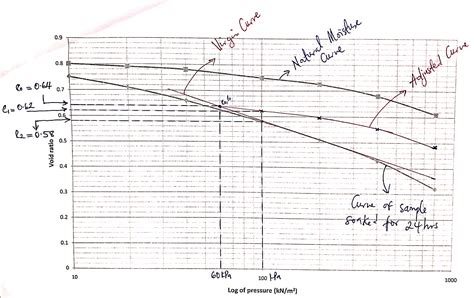 Virgin Curve
Natural Moisture
Curve
Adjusted Curve
0.9
0.8
0.7
0.6
0.5
0.4
0.3
0.2
0.1
0
e₀ = 0.64
e₁ = 0.62
e₂ = 0.58
Void ratio
Curve of sample
soaked for 24hrs
10
60 kPa
100 kPa
1000
Log of pressure (kN/m²)